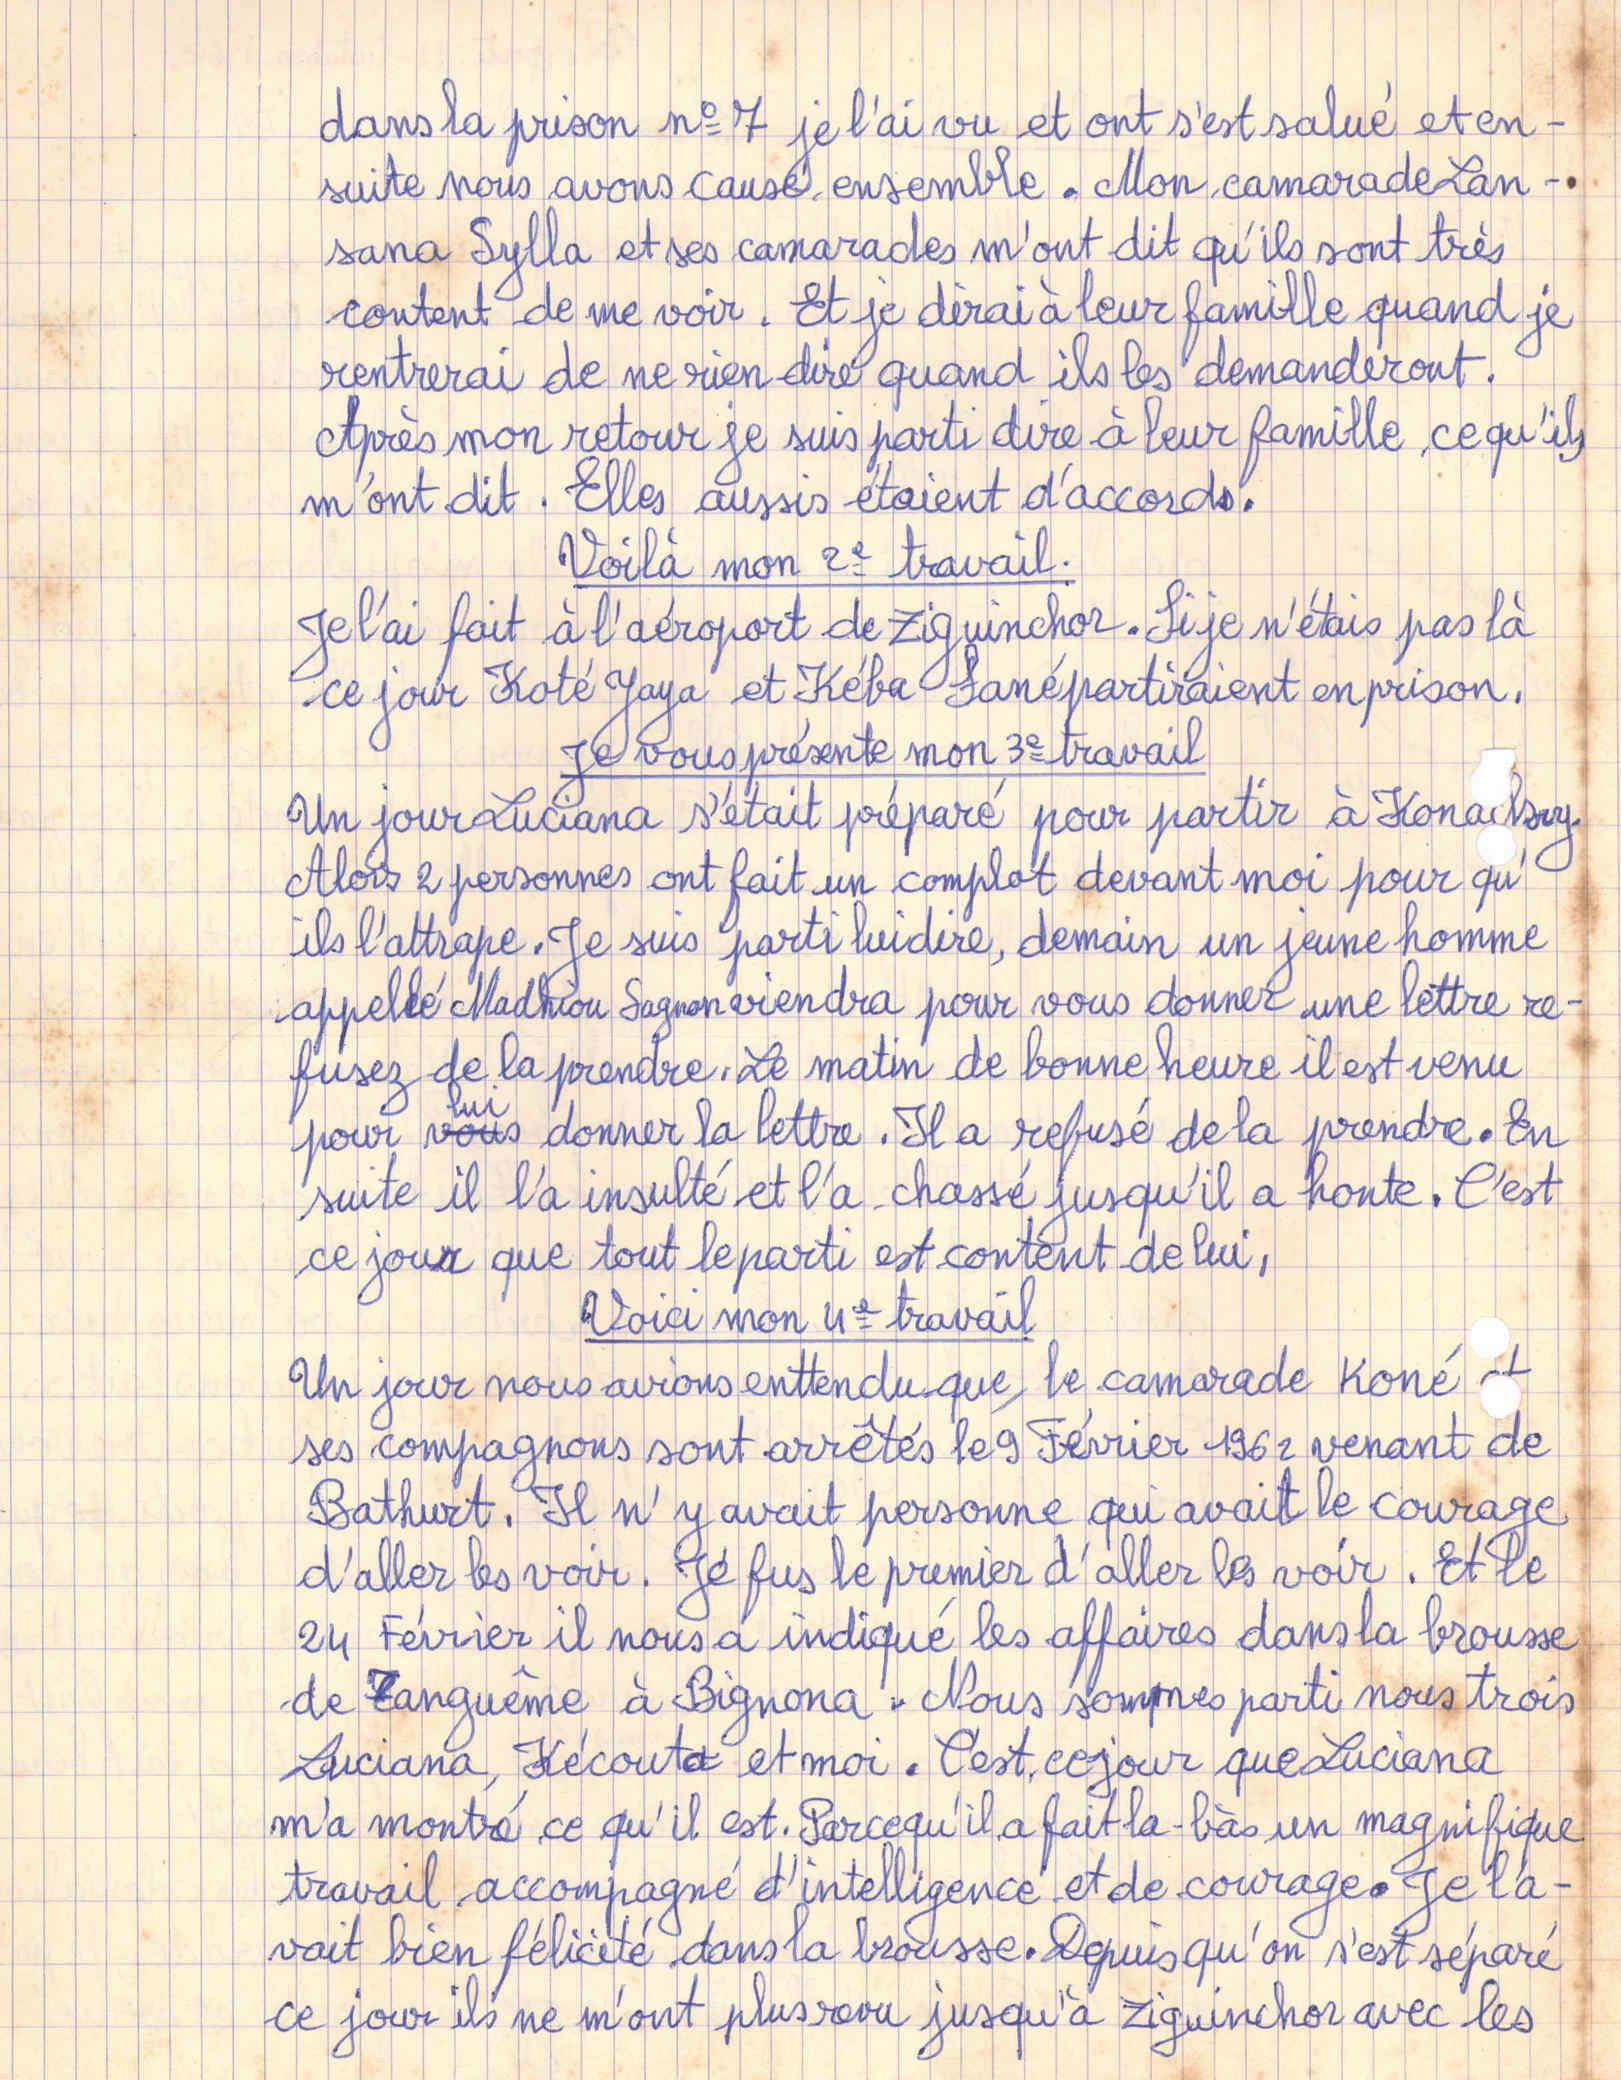 dans la prison nº 7 je l'ai vu et ont s'est salué et en-
suite nous avons causé ensemble. Mon camarade Lan-
sana Sylla et ses camarades m'ont dit qu'ils sont très
content de me voir. Et je dirai à leur famille quand je
rentrerai de ne rien dire quand ils les demanderont.
Après mon retour je suis parti dire à leur famille ce qu'ils
m'ont dit. Elles aussis étaient d'accords.
Voilà mon 2e travail.
Je l'ai fait à l'aéroport de Ziguinchor. Si je n'étais pas là
ce jour Koté Yaya et Kéba Sané partiraient en prison.
Je vous présente mon 3e travail
Un jour Luciana s'était préparé pour partir à Konackry.
Alors 2 personnes ont fait un complot devant moi pour qu'
ils l'attrape. Je suis parti lui dire, demain un jeune homme
appellé Madhiou Sagnan viendra pour vous donner une lettre re-
fusez de la prendre. Le matin de bonne heure il est venu
pour vous lui donner la lettre. Il a refusé de la prendre. En
suite il l'a insulté et l'a chassé jusqu'il a honte. C'est
ce jour que tout le parti est content de lui,
Voici mon 4e travail
Un jour nous avions enttendu que, le camarade Koné et
ses compagnons sont arrêtés le 9 Février 1962 venant de
Bathurt. Il n'y avait personne qui avait le courage
d'aller les voir. Jé fus le premier d'aller les voir. Et le
24 Février il nous a indiqué les affaires dans la brousse
de Tanguême à Bignona. Nous sommes parti nous trois
Luciana, Kécouta et moi. C'est ce jour que Luciana
m'a montré ce qu'il est. Parcequ'il a fait la-bàs un magnifique
travail accompagné d'intelligence et de courage. Je l'a-
vait bien félicité dans la brousse. Depuis qu'on s'est séparé
ce jour ils ne m'ont plus revu jusqu'à Ziguinchor avec les